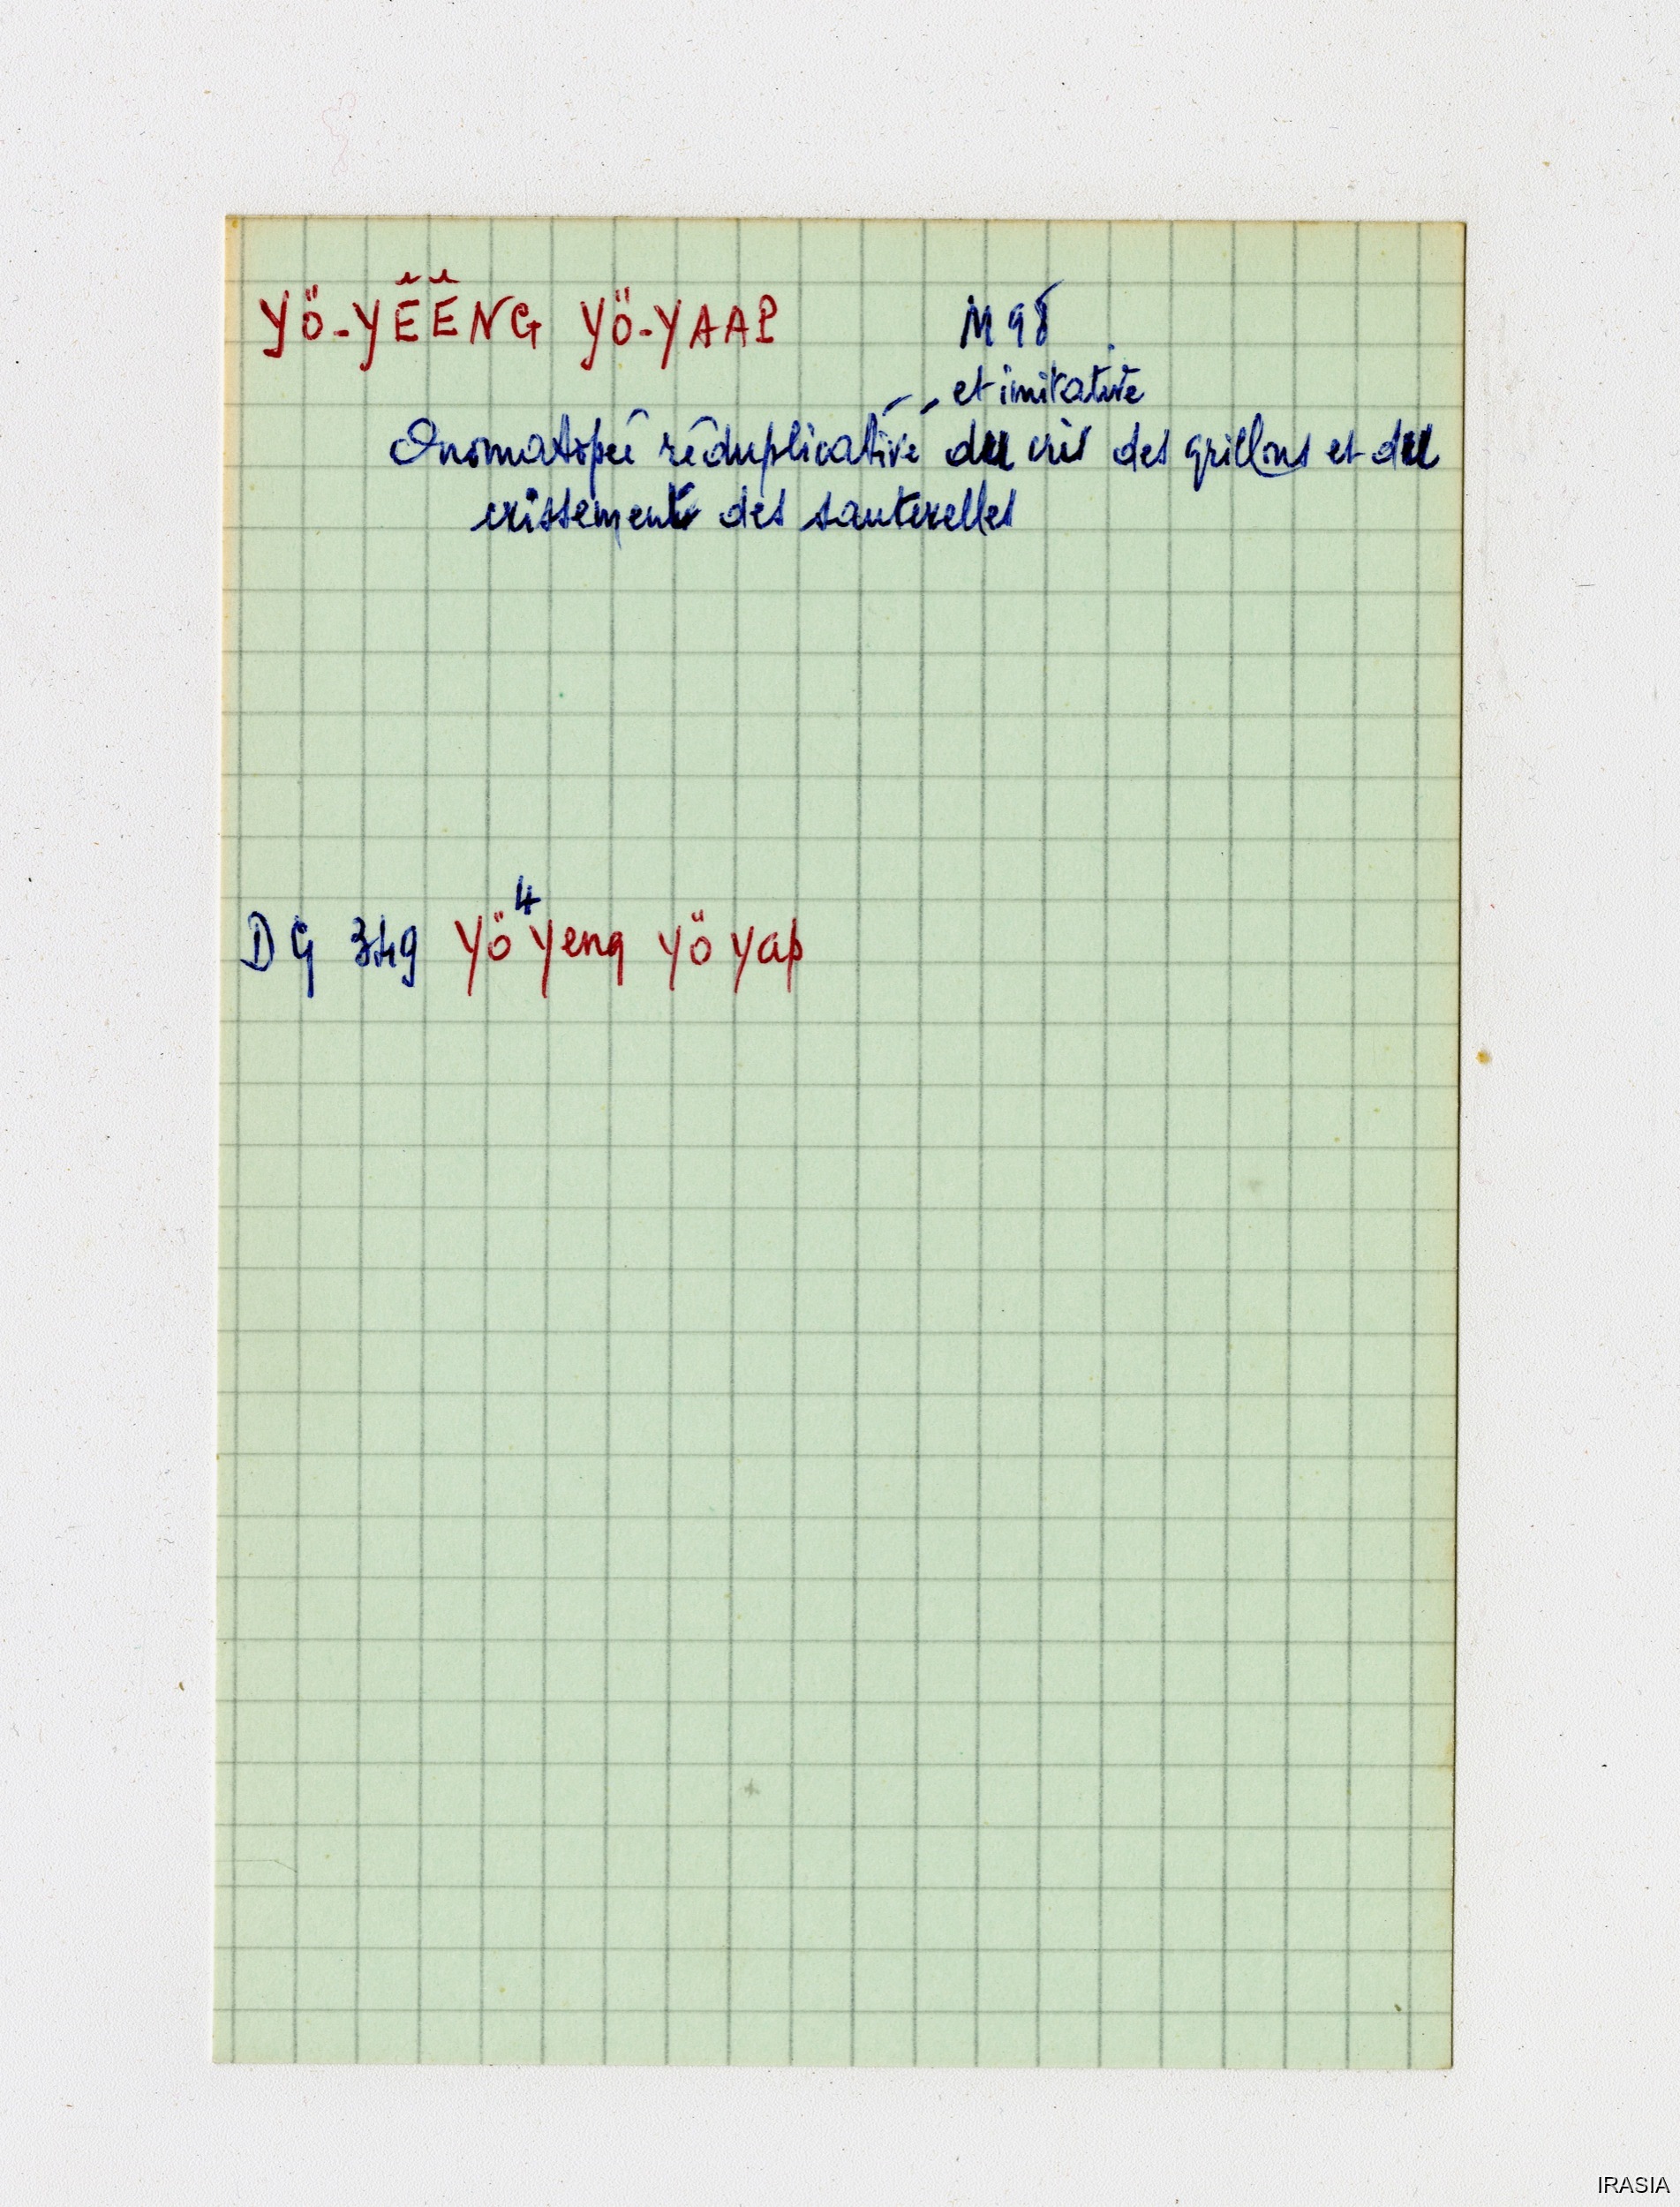 YÖ-YẼẼNG YÖ-YAAP M 98
et imitative
Onomatopée réduplicative du cri des grillons et du
crissement des sauterelles
DG 349 Yö⁴ Yeng Yö Yap
IRASIA